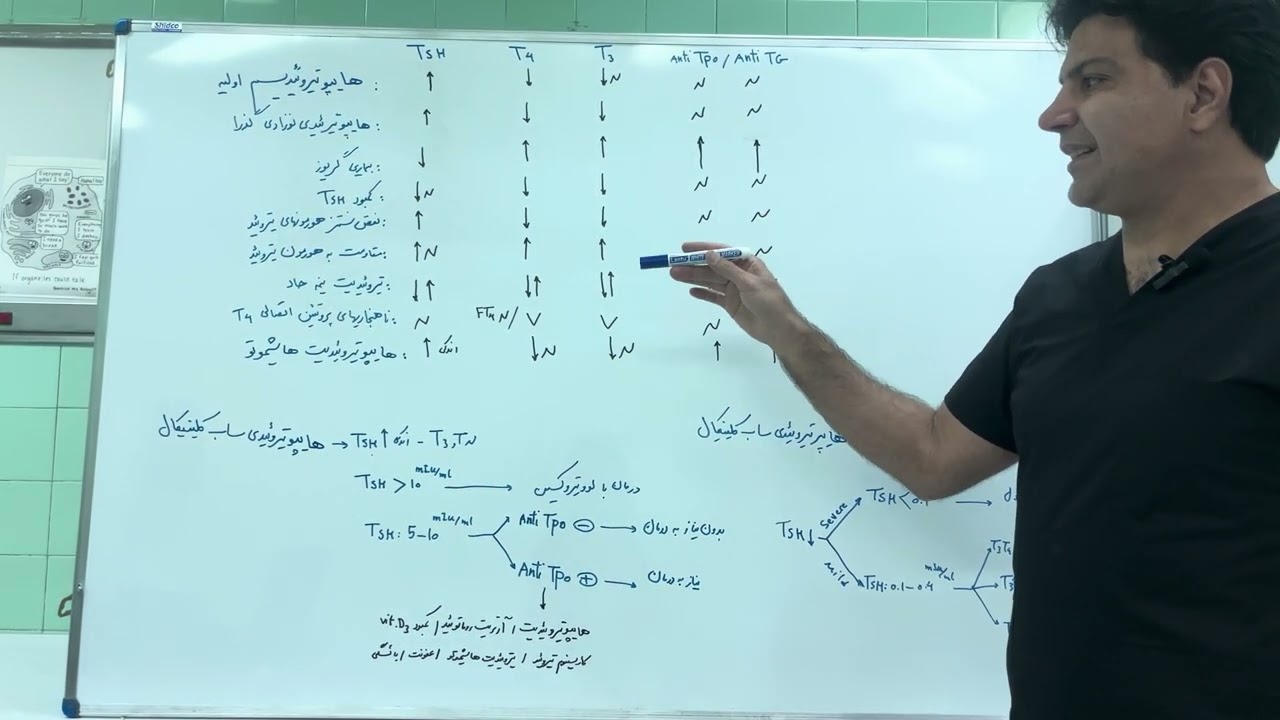 Shidco
TSH T4 T3 Anti Tpo / Anti TG
هایپوتیروئیدیسم اولیه : ↑ ↓ ↓N N N
هایپوتیروئیدی نوزادی گذرا : ↑ ↓ ↓ N N
بیماری گریوز : ↓ ↑ ↑ ↑ ↑
کمبود TSH : ↓N ↓ ↓ N N
نقص سنتز هورمونهای تیروئید : ↑ ↓ ↓ N N
مقاومت به هورمون تیروئید : ↑N ↑ ↑ N
تیروئیدیت نیمه حاد : ↓↑ ↓↑ ↓↑
ناهنجاریهای پروتئین اتصالی T4 : N FT4 N/ ↓ ↓ N
هایپوتیروئیدیت هاشیموتو : ↑ اندکی ↓N ↓N ↑ ↑
هایپوتیروئیدی ساب کلینیکال → TSH ↑ اندکی - T3,T N
TSH > 10 mIu/ml → درمان با لووتیروکسین
TSH: 5-10 mIu/ml
Anti Tpo ⊖ → بدون نیاز به درمان
Anti Tpo ⊕ → نیاز به درمان
هایپوتیروئیدیت / آرتریت روماتوئید / کمبود vit.D3
کارسینوم تیروئید / تیروئیدیت هاشیموتو / عفونت / یائسگی
هایپرتیروئیدی ساب کلینیکال
TSH ↓
Severe TSH < 0.1 →
mild TSH: 0.1-0.4 mIu/ml
T3T4
T3
Everyone do what I say!
If organelles could talk